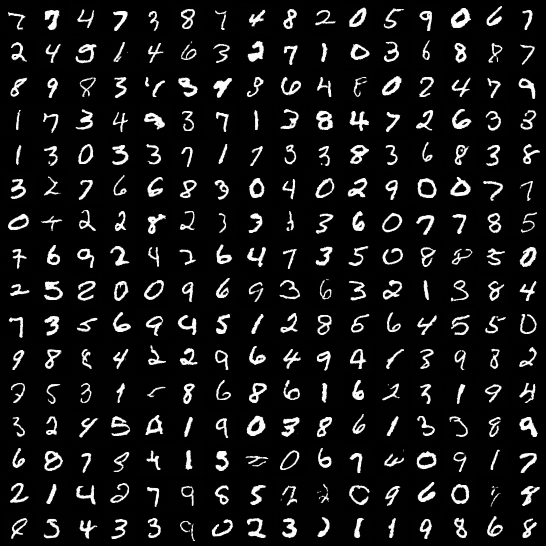 7 3 4 7 3 8 7 4 8 2 0 5 9 0 6 7
2 4 9 1 4 6 3 2 7 1 0 3 6 8 8 7
8 9 8 3 4 3 8 6 4 8 0 2 4 7 9
1 7 3 4 9 3 7 1 3 8 4 7 2 6 3 3
1 3 0 3 3 7 1 7 3 3 8 3 6 8 3 8
3 2 7 6 6 8 3 0 4 0 2 9 0 0 7 7
0 4 2 2 8 2 3 3 3 6 0 7 7 8 5
7 6 9 2 4 2 6 4 7 3 5 0 8 8 5 0
2 5 2 0 0 9 6 9 3 6 3 2 1 3 8 4
7 3 5 6 9 4 5 1 2 8 6 6 4 5 5 0
9 8 8 4 2 2 9 6 4 9 4 1 3 9 8 2
5 3 1 8 6 8 6 1 6 2 3 1 9 4
3 2 4 5 4 1 9 0 3 8 6 1 3 3 8 9
6 8 7 8 4 1 5 2 0 6 7 4 0 9 1 7
2 1 4 2 7 9 8 5 2 2 0 9 6 0 8
8 5 4 3 3 9 0 2 3 1 1 9 8 6 8